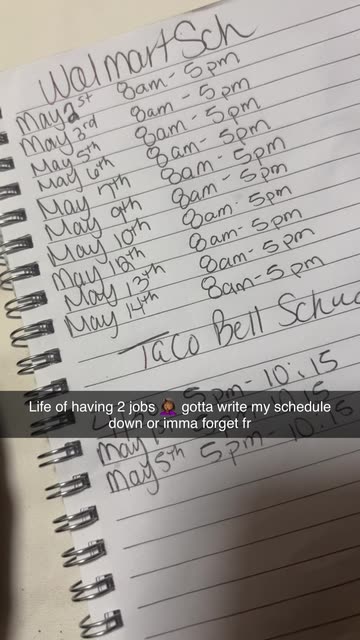 Walmart Sch
May 2st 8am - 5pm
May 3rd 8am - 5pm
May 5th 8am - 5pm
May 6th 8am - 5pm
May 7th 8am - 5pm
May 9th 8am - 5pm
May 10th 8am - 5pm
May 12th 8am - 5pm
May 13th 8am - 5pm
May 14th 8am - 5pm
Taco Bell Schuc
5pm - 10:15
Life of having 2 jobs 🤦🏾‍♀️ gotta write my schedule
down or imma forget fr
May 10:15
May 5th 5pm - 10:15